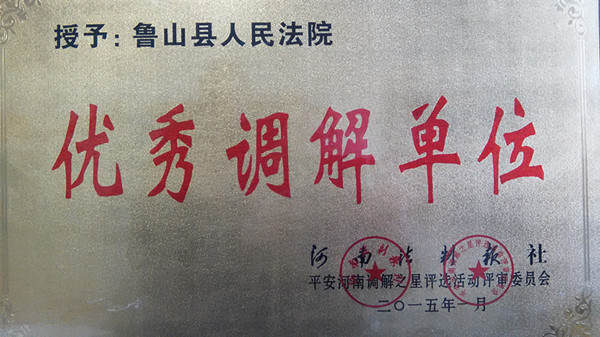 授予：鲁山县人民法院
优秀调解单位
河南法制报社
平安河南调解之星评选活动评审委员会
二〇一五年一月